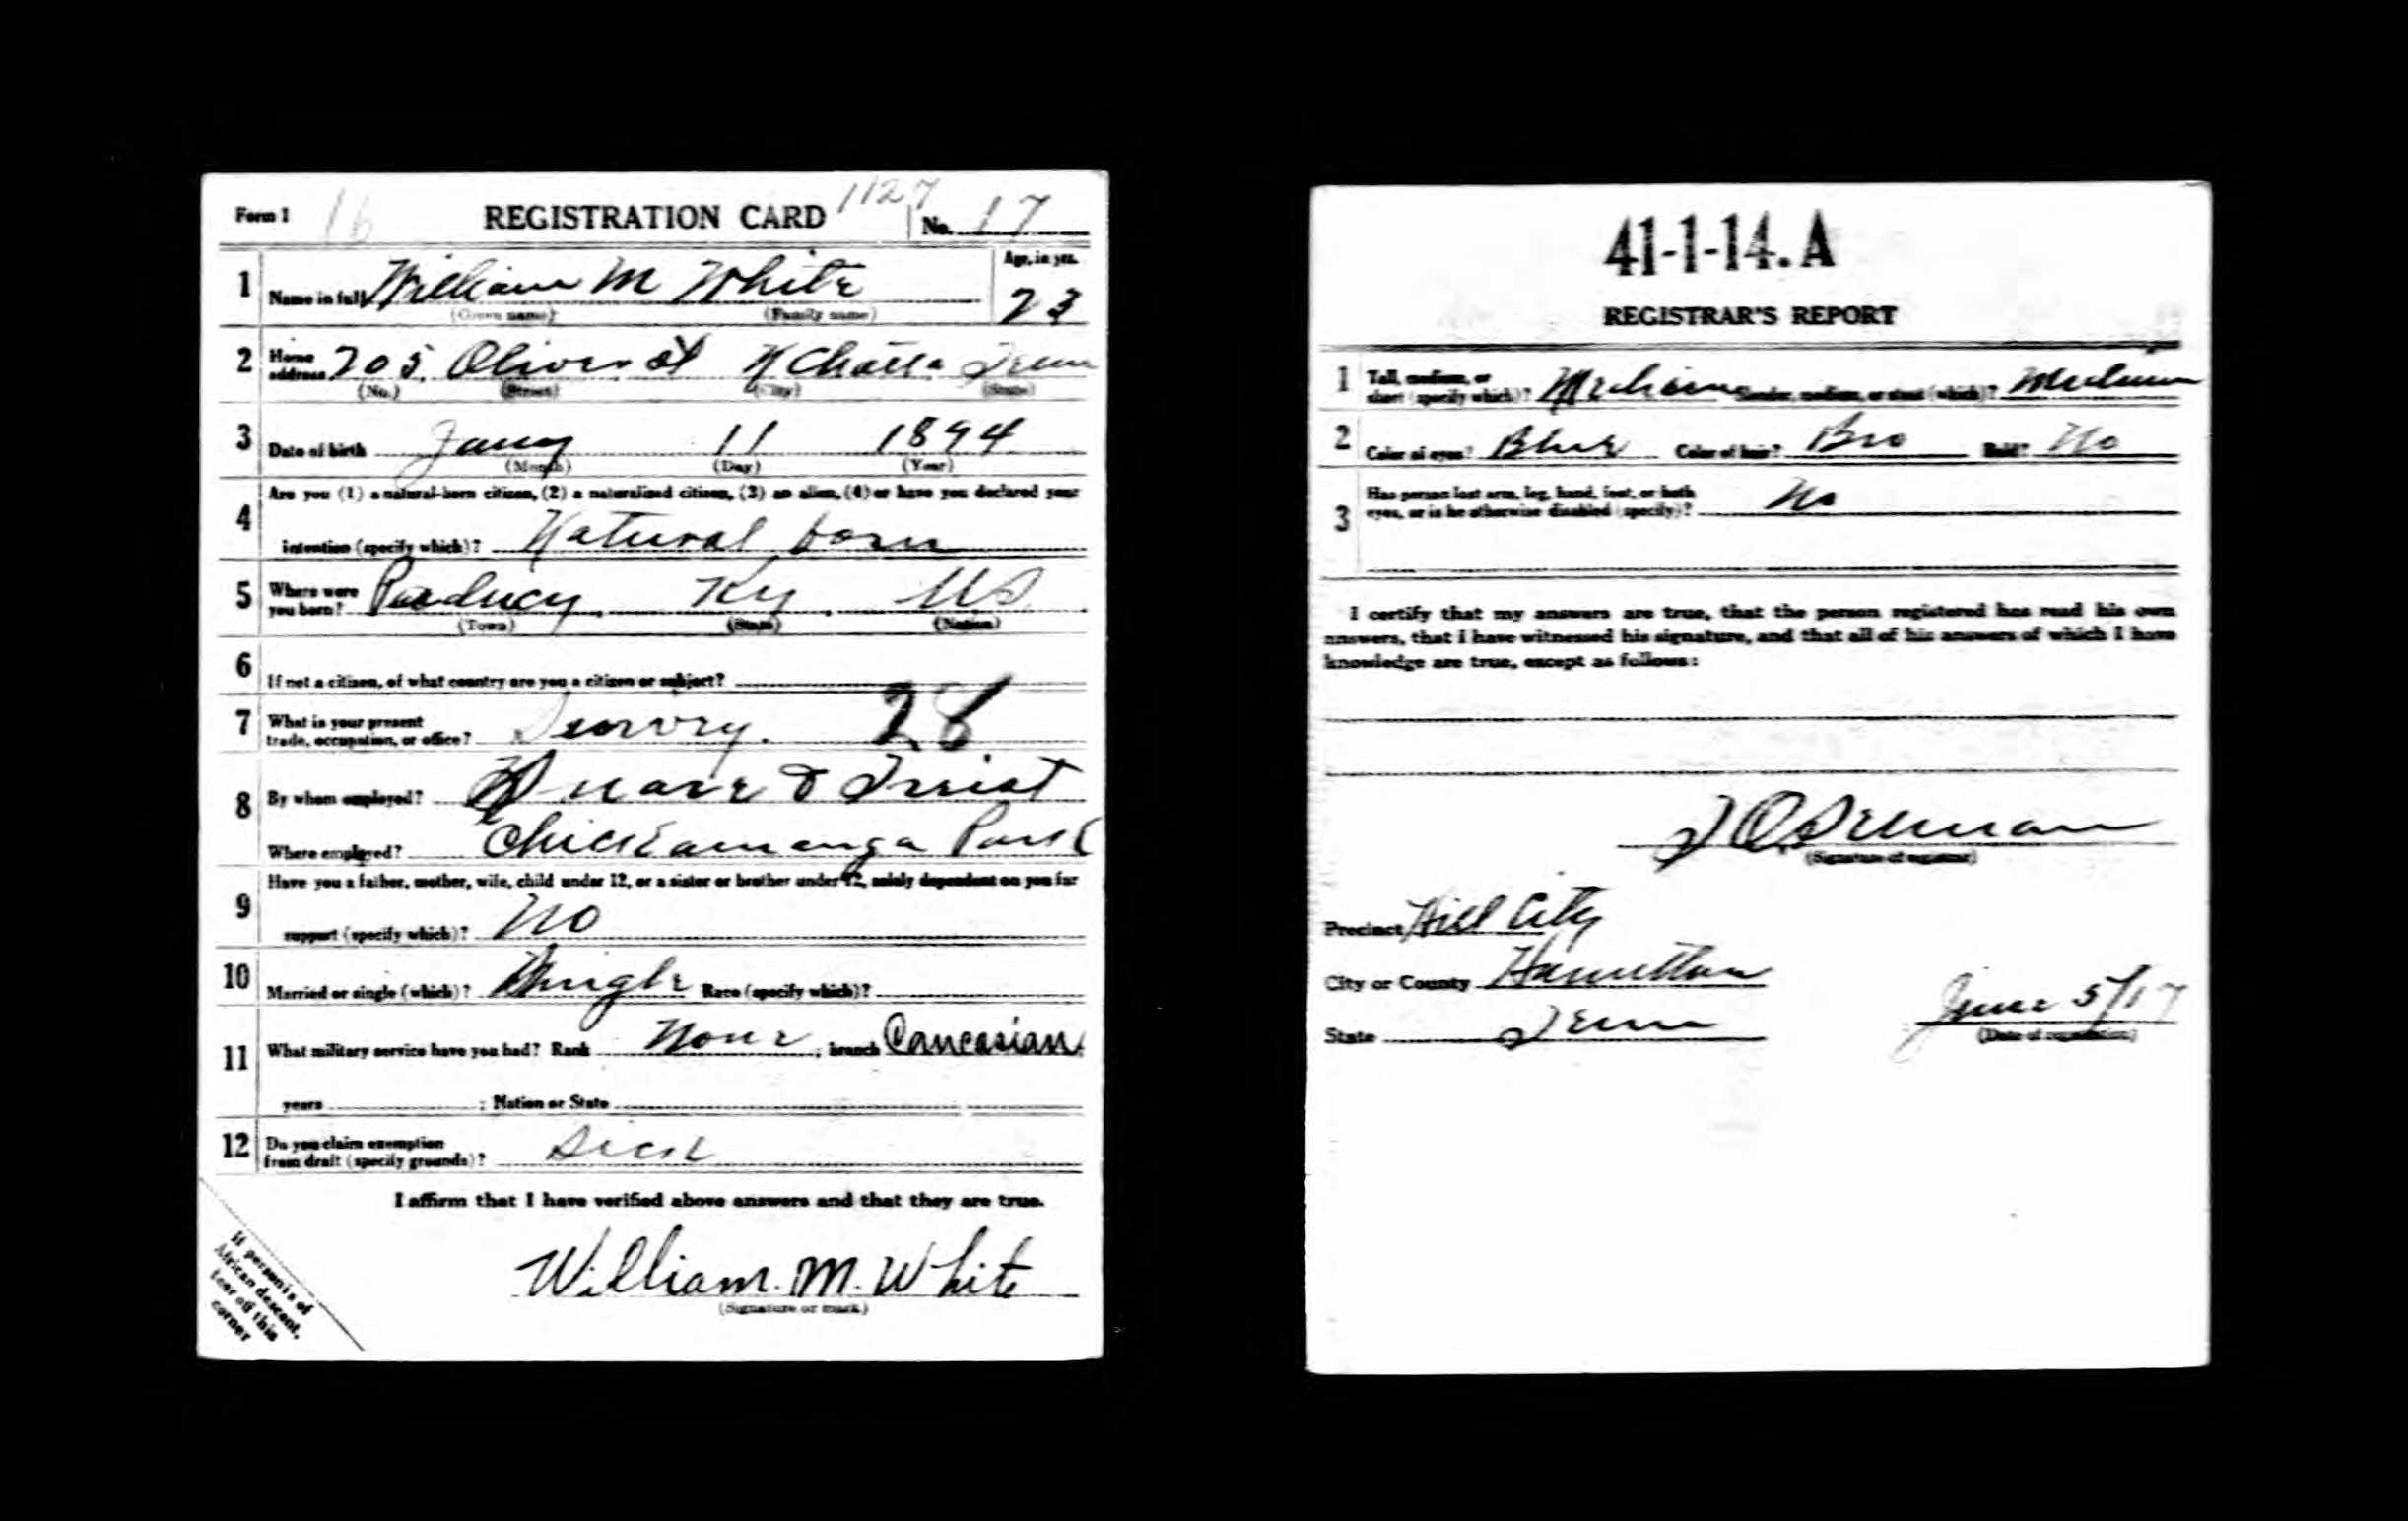 Form 1 16 REGISTRATION CARD 1127 No. 17
1 Name in full William M White Age, in yrs. 23
(Given name) (Family name)
2 Home address 205 Oliver st N Chatta Tenn
(No.) (Street) (City) (State)
3 Date of birth Jany 11 1894
(Month) (Day) (Year)
4 Are you (1) a natural-born citizen, (2) a naturalized citizen, (3) an alien, (4) or have you declared your
intention (specify which)? Natural born
5 Where were you born? Paducy Ky US
(Town) (State) (Nation)
6 If not a citizen, of what country are you a citizen or subject?
7 What is your present
trade, occupation, or office? 28
8 By whom employed? & Triest
Where employed? Chickamauga Park
9 Have you a father, mother, wife, child under 12, or a sister or brother under 12, solely dependent on you for
support (specify which)? No
10 Married or single (which)? Single Race (specify which)?
11 What military service have you had? Rank None ; branch Caucasian
years ; Nation or State
12 Do you claim exemption
from draft (specify grounds)? Sick
I affirm that I have verified above answers and that they are true.
William. M. White
(Signature or mark)
If person is of
African descent,
tear off this
corner
41-1-14. A
REGISTRAR'S REPORT
1 Tall, medium, or
short (specify which)? Medium Slender, medium, or stout (which)? Medium
2 Color of eyes? Blue Color of hair? Bro Bald? No
3 Has person lost arm, leg, hand, foot, or both
eyes, or is he otherwise disabled (specify)? No
I certify that my answers are true, that the person registered has read his own
answers, that I have witnessed his signature, and that all of his answers of which I have
knowledge are true, except as follows:
(Signature of registrar)
Precinct Hill City
City or County Hamilton
State Tenn
June 5/17
(Date of registration)